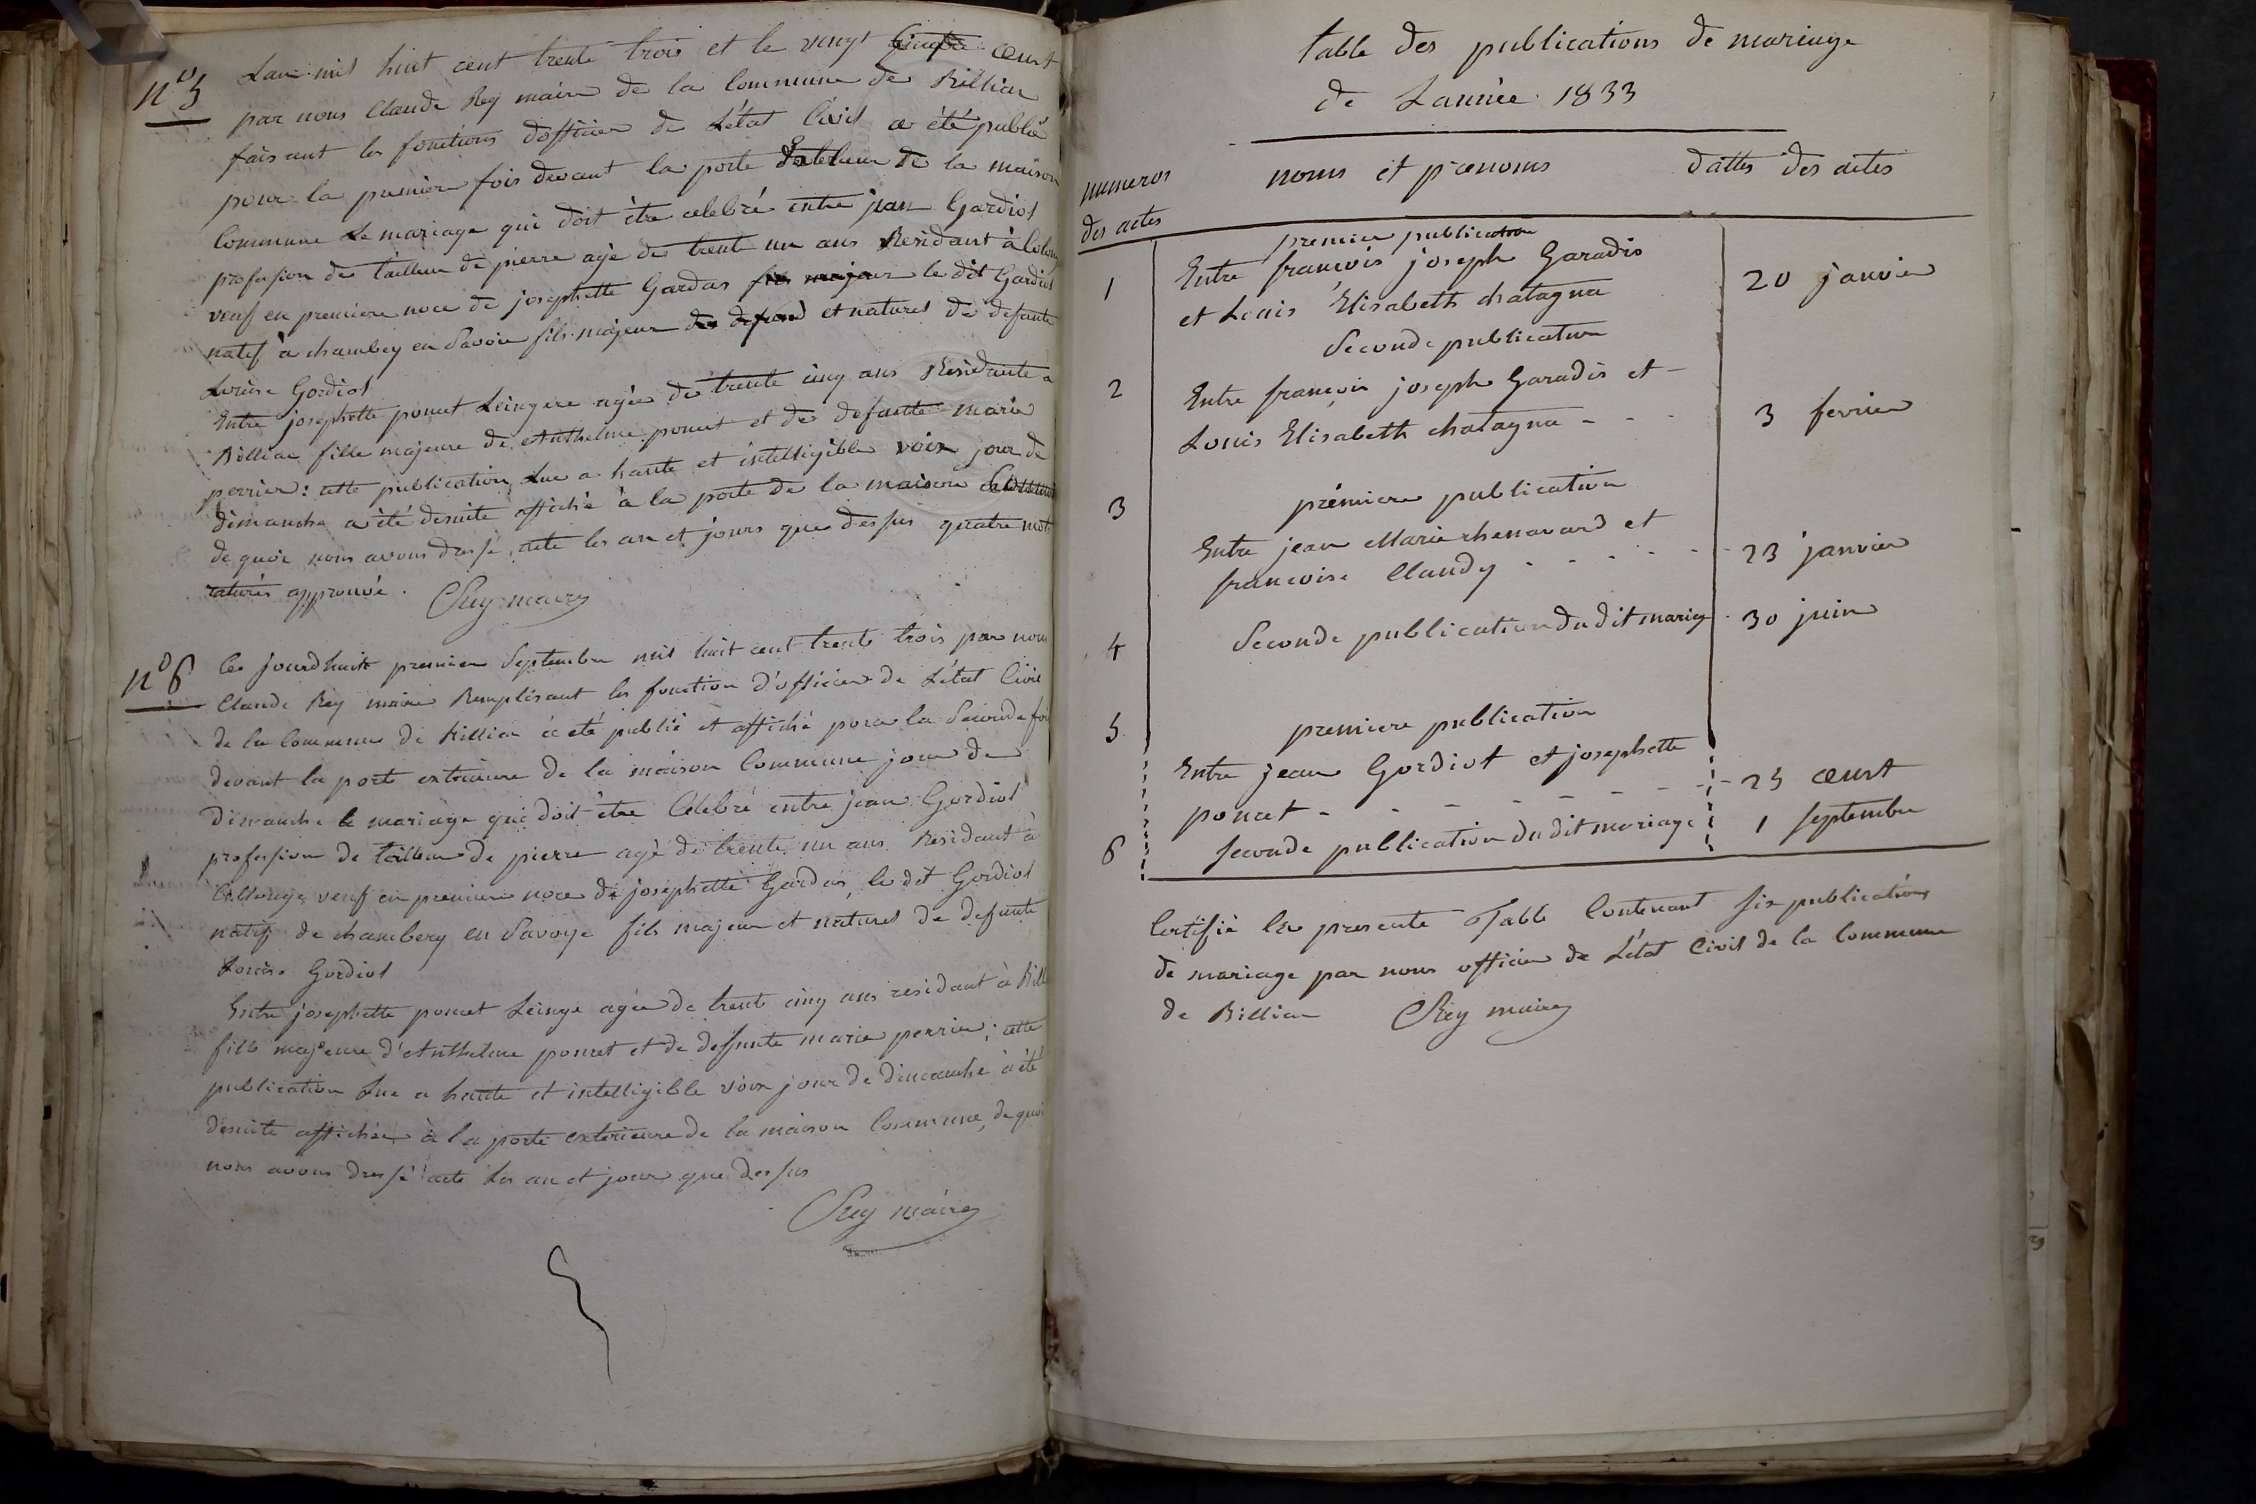 n° 5
Lan mil huit cent trente trois et le vingt cinq aoust
par nous Claude Rey maire de la Commune de Billiac
faisant les fonctions dofficier de L'état Civil a été publié
pour la premiere fois devant la porte de la maison
Commune Le mariage qui doit être celebré entre jean Gordiol
profession de tailleur de pierre agé de trent un ans Residant à
veuf en premiere noce de josephette Gardas fils majeur le dit Gordiol
natif à chambey en Savoie fils majeur et naturel de defunte
Louise Gordiol
Entre josephette poncet Leingere agée de trente cinq ans Residante a
Billiac fille majeure de Anthelme poncet et de defuette marie
perrier : cette publication Lue a haute et intelligible voix jour de
dimanche a été desuite affiché à la porte de la maison
de quoi nous avons dressé acte les an et jours que dessus quatre mots
raturés approuvé .
CRey maire
n° 6
Ce jourdhuit premier Septembre mil huit cent trente trois par nous
Claude Rey maire Remplisant les fonction d'officier de L'état Civil
de la Commune de Billiac a été publié et affiché pour la Seconde fois
devant la porte exterieure de la maison Commune jour de
Dimanche le mariage qui doit être Célébré entre jean Gordiol
profession de tailleur de pierre agé de trente un ans Residant à
veuf en premiere noce de josephette Gardas, le dit Gordiol
natif de chambery en Savoye fils majeur et naturel de defunte
Louise Gordiol
Entre josephette poncet Leinge agée de trente cinq ans residant à Bill
fille majeure d'Anthelme poncet et de defunte marie perrier ; cette
publication Lue a haute et intelligible voix jour de dimanche a été
desuite affichée à la porte exterieure de la maison Commune, de quoi
nous avons dressé acte Les an et jour que dessus
CRey maire
table des publications de mariage
de Lannée 1833
numeros
des actes
noms et prenoms
dattes des actes
premier publication
1
Entre françois joseph Garadis
et Louis Elisabeth chatagna
20 janvier
Seconde publication
2
Entre françois joseph Garadis et -
Louis Elisabeth chatagna - - -
3 fevrier
3
premiere publication
Entre jean Marie chenavard et
francoise Claudy - - - -
23 janvier
4
Seconde publication du dit mariag
30 juin
5
premiere publication
Entre jean Gordiot et josephette
poncet - - - - - - -
25 aoust
6
seconde publication du dit mariage
1 septembre
Certifié la presente Table Contenant six publications
de mariage par nous officier de L'état Civil de la Commune
de Billiac
CRey maire